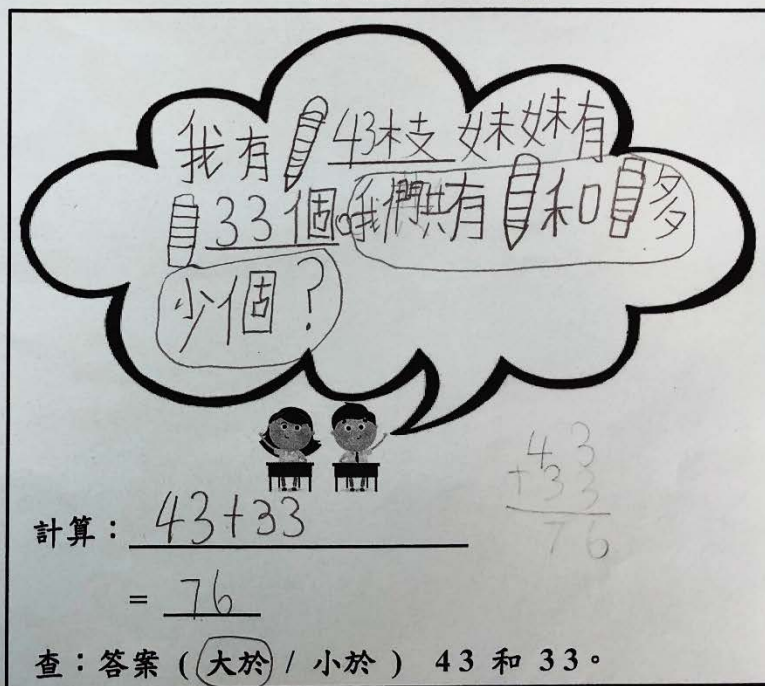 我有 43枝 妹妹有
33個。我們共有 和 多
少個?
43
+33
76
計算:43+33
= 76
查:答案(大於 / 小於) 43 和 33。